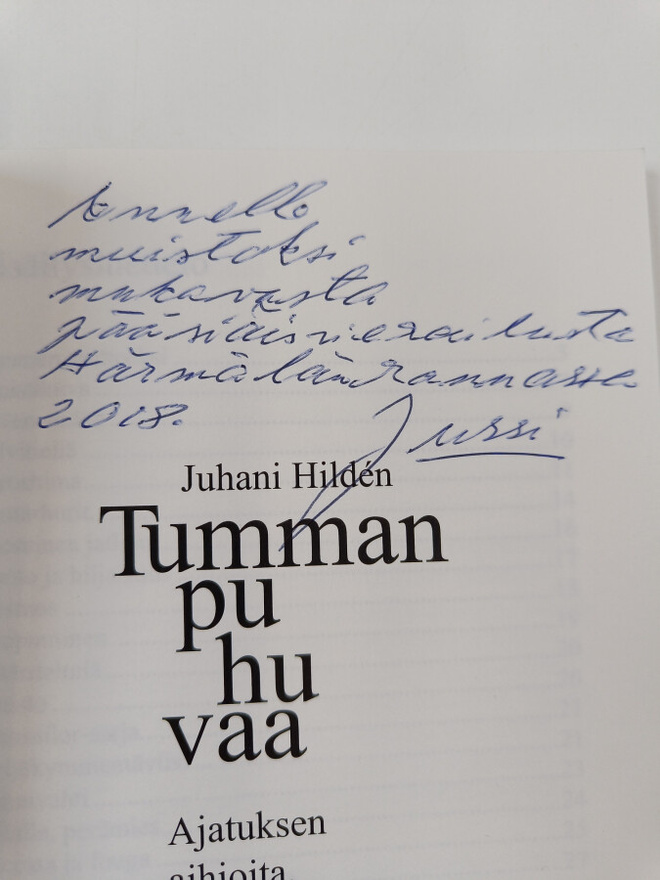 muistoksi
mukavasta
pääsiäisvierailusta
Härmälänrannassa
2018.
Jussi
Juhani Hildén
Tumman
pu
hu
vaa
Ajatuksen
aihioita